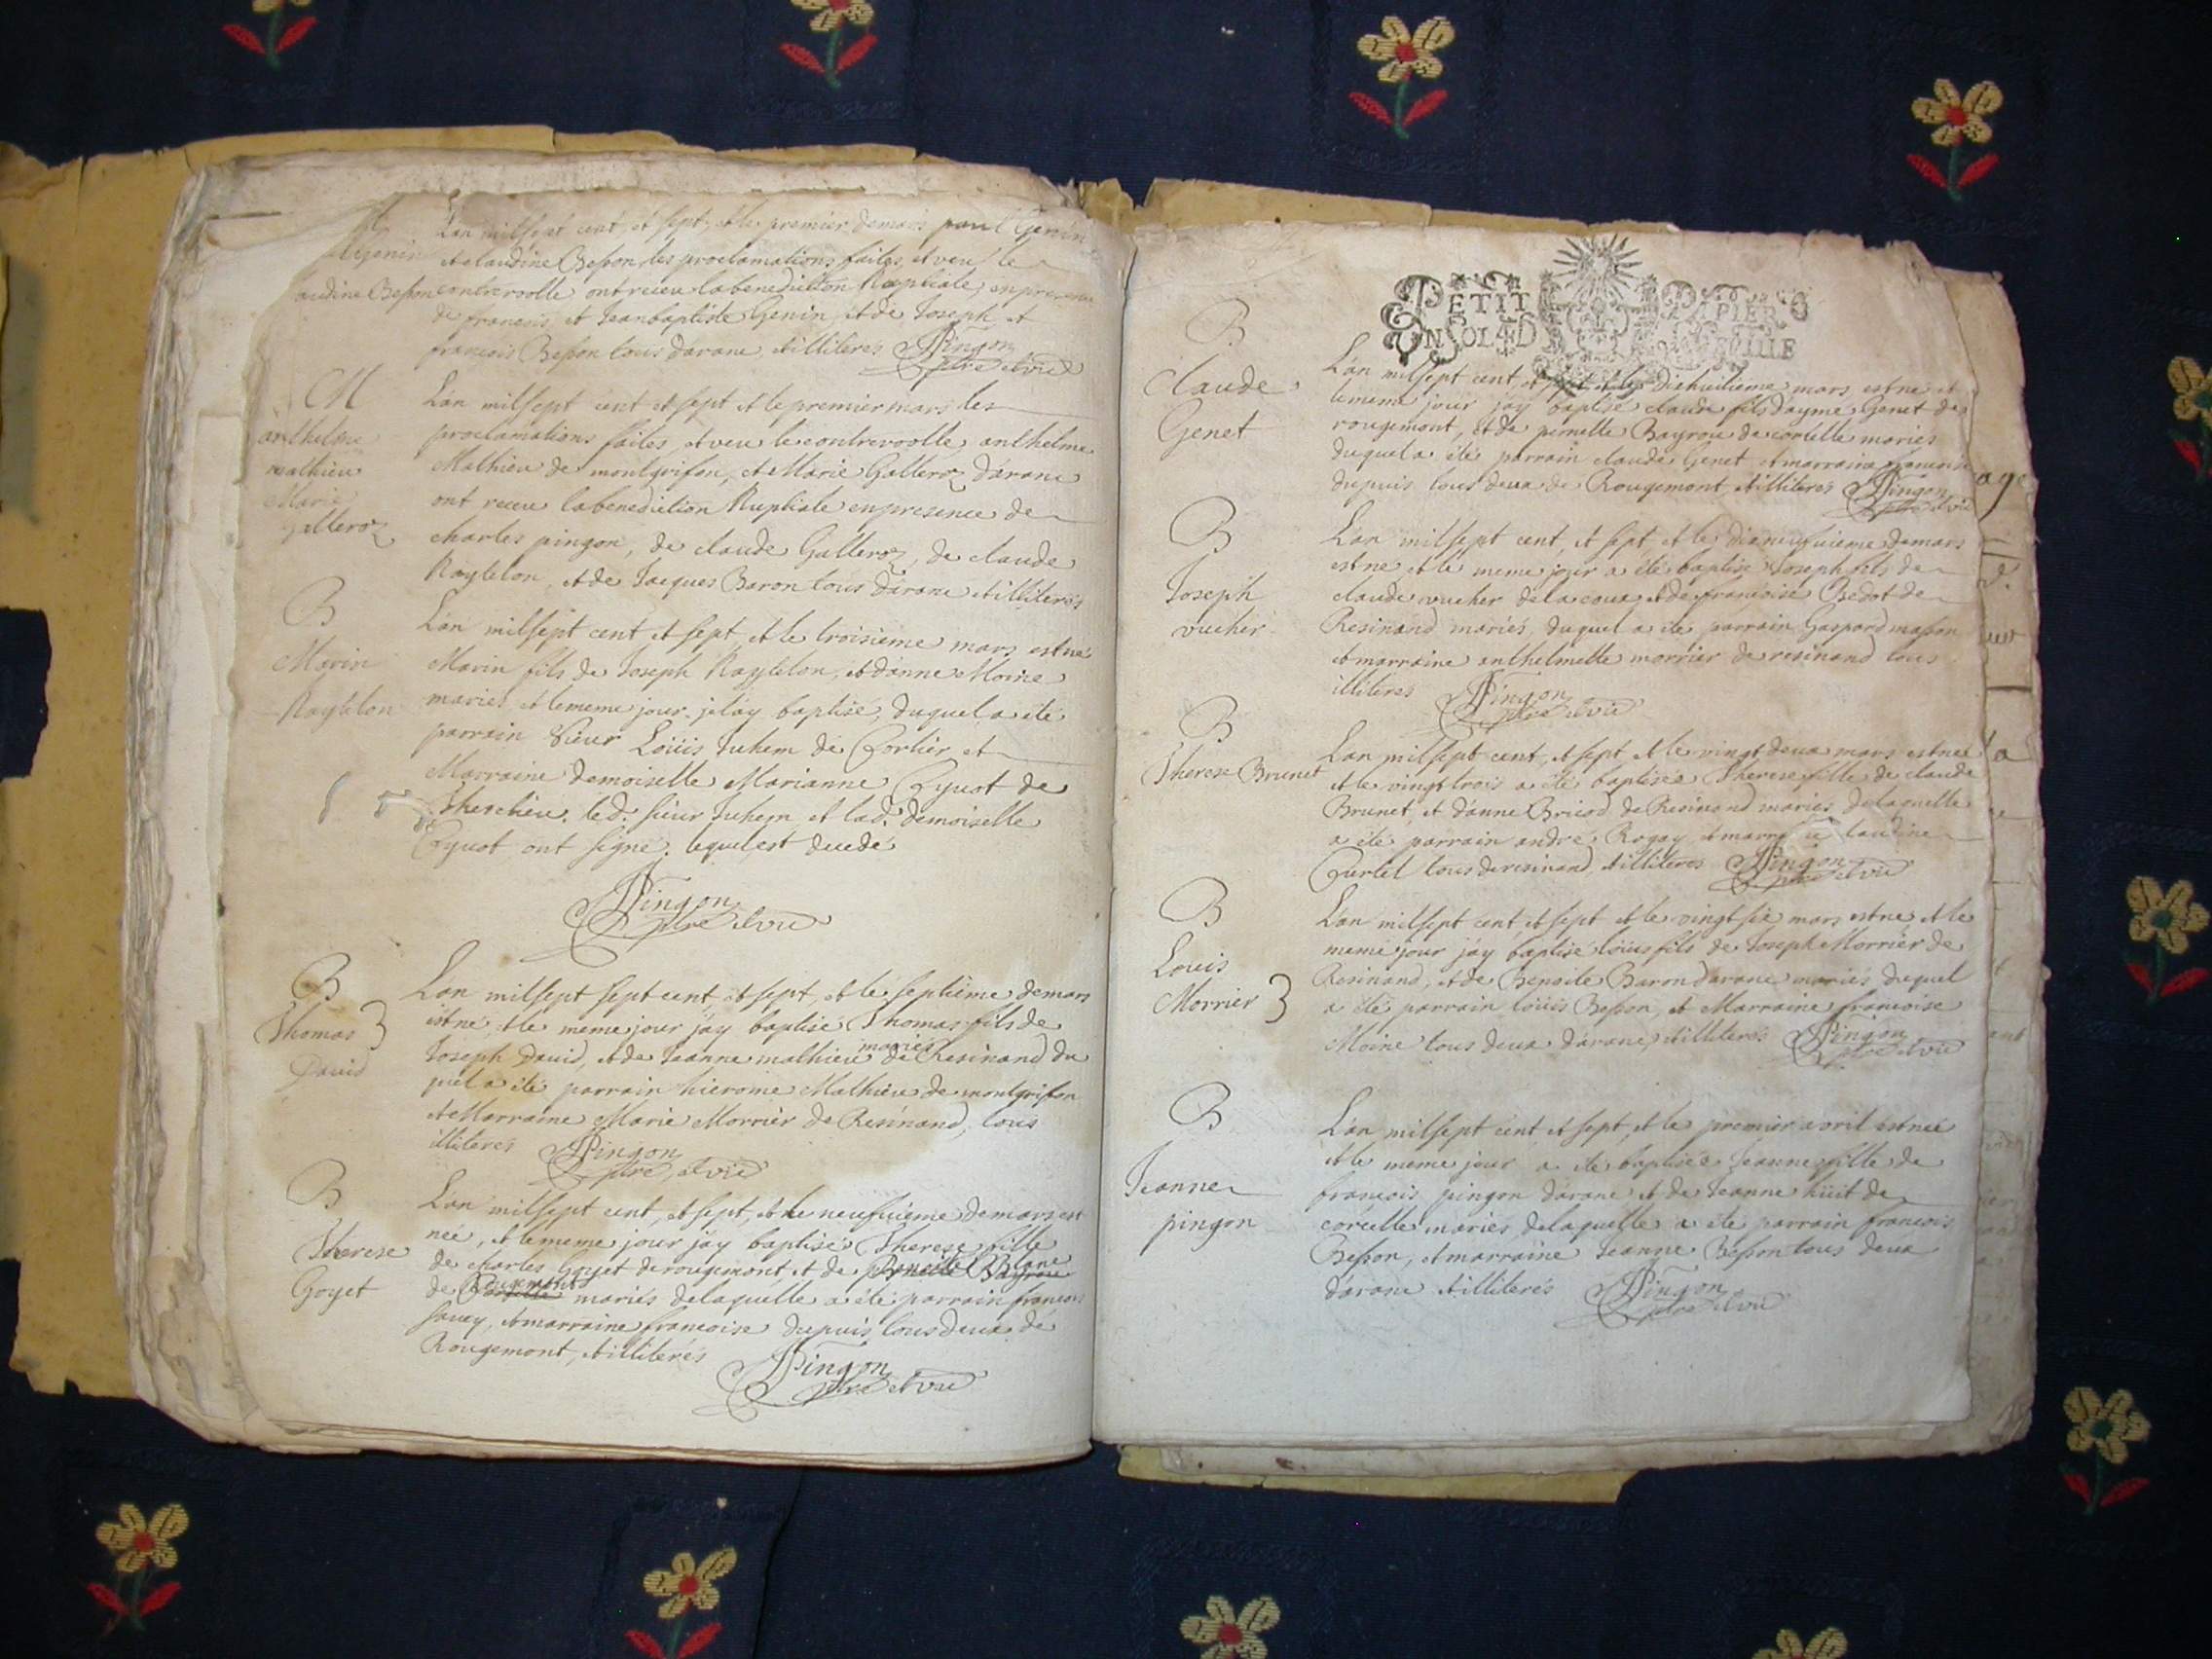 Lan milsept cent, et sept, et le premier demars paul Genin
et claudine Besson les proclamations faites, et veu le
contreroolle ont receu labenediction Nuptiale, en presence
de francois, et Jeanbaptiste Genin, et de Joseph et
francois Besson tous darane, et illiteres Pingon
ptre et vic
genin
audine Besson
M
anthelme
mathieu
Marie
Galleroz
Lan milsept cent et sept et le premier mars les
proclamations faites, et veu le contreroolle, anthelme
Mathieu de montgrifon, et Marie Galleroz darane
ont receu labenediction Nuptiale en presence de
charles pingon, de claude Galleroz, de claude
Raytelon, et de Jacques Baron tous darane et illiterés
B
Marin
Raytelon
Lan milsept cent et sept, et le troisieme mars est né
Marin fils de Joseph Raytelon, et danne Moine
mariés et lememe jour jelay baptisé, duquel a eté
parrain sieur Loüis Juhem de Corlier et
Marraine demoiselle Marianne Cyuot de
Therchieu. led. sieur Juhem et lad. demoiselle
Cyuot ont signé. lequel est decedé
Pingon
ptre et vic
B
Thomas
David
Lan milsept sept cent, et sept, et le septieme demars
est né, et le meme jour jay baptisé Thomas fils de
Joseph David, et de Jeanne mathieu mariés de Resinand du
quel a eté parrain hierome Mathieu de montgrifon
et Marraine Marie Morrier de Resinand, tous
illiterés Pingon
ptre et vic
B
Therese
Goyet
Lan milsept cent, et sept, et le neufuieme demars est
née, et lememe jour jay baptisé Therese fille
de charles Goyet de rougemont et de Blanc
de Rougemont mariés delaquelle a eté parrain francois
savey, et marraine francoise dupuis tous deux de
Rougemont, et illiterés Pingon
ptre et vic
PETIT PAPIER
UN SOL 4 D LA FEUILLE
B
Claude
Genet
Lan milsept cent, et sept et le dixhuitieme mars est né et
lememe jour jay baptisé claude fils daymé Genet de
rougemont, et de pernette Bayrou de corcelle mariés
duquel a été parrain claude Genet et marraine francoise
dupuis tous deux de Rougemont, et illiteres Pingon
ptre et vic
B
Joseph
vucher
Lan milsept cent, et sept, et le dixneufuieme demars
est né et le meme jour a été baptisé Joseph fils de
claude vucher delacoux, et de françoise Bedot de
Resinand mariés, duquel a eté parrain Gaspard masson
et marraine anthelmette morrier de resinand tous
illiteres Pingon
ptre et vic
B
Therese Brunet
Lan milsept cent, et sept et le vingt deux mars est née
et le vingt trois a été baptisée Therese fille de claude
Brunet, et danne Briord de Resinand mariés, delaquelle
a été parrain andré Rogay et marraine claudine
Curtet tous de resinand, et illiteres Pingon
ptre et vic
B
Louis
Morrier
Lan milsept cent, et sept et le vingt six mars est né, et le
meme jour jay baptisé loüis fils de Joseph Morrier de
Resinand, et de Benoite Baron darane mariés duquel
a été parrain loüis Besson, et Marraine francoise
Moine tous deux darane, et illiterés Pingon
ptre et vic
B
Jeanne
pingon
Lan milsept cent et sept, et le premier avril est née
et le meme jour a été baptisée Jeanne fille de
francois pingon darane et de Jeanne hüit de
corcelle mariés delaquelle a été parrain francois
Besson, et marraine Jeanne Besson tous deux
darane et illiterés Pingon
ptre et vic